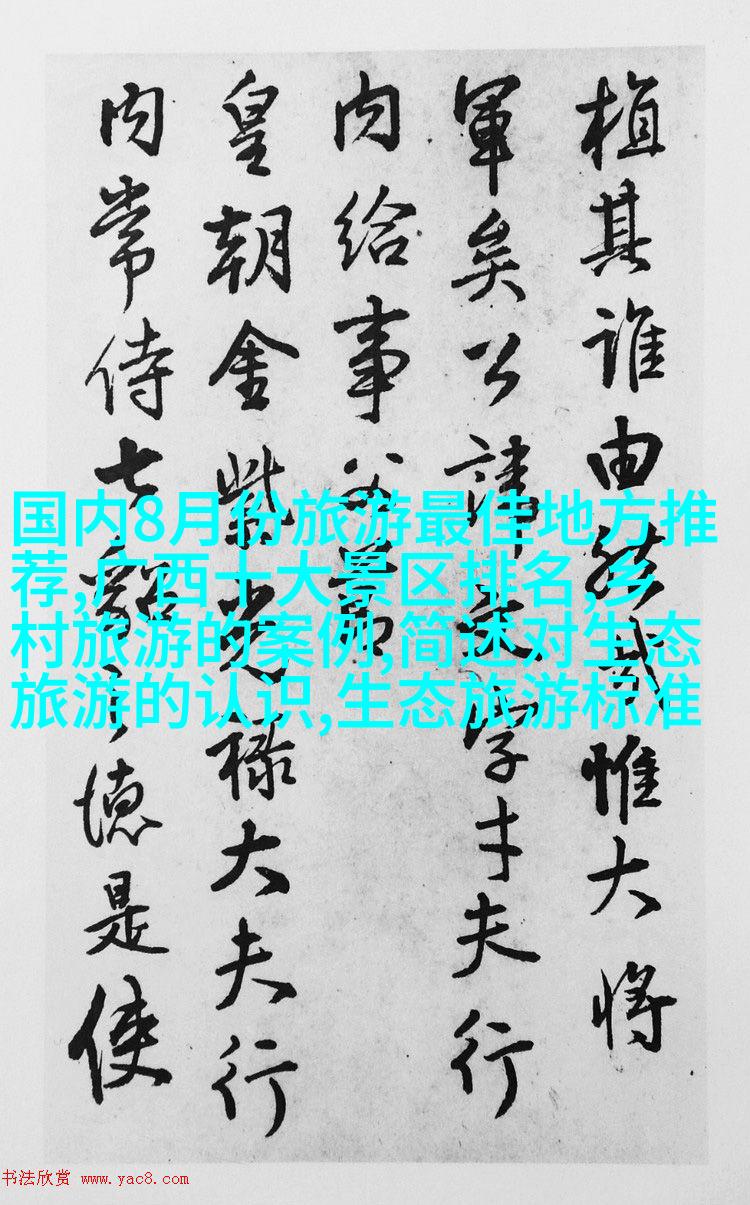 植其誰由然哉惟大將
軍矣公諱字才夫行
内給事父
皇朝金紫光祿大夫行
内常侍七貂之德是使
国内8月份旅游最佳地方推
荐,广西十大景区排名,乡
村旅游的案例,简述对生态
旅游的认识,生态旅游标准
书法欣赏 www.yac8.com